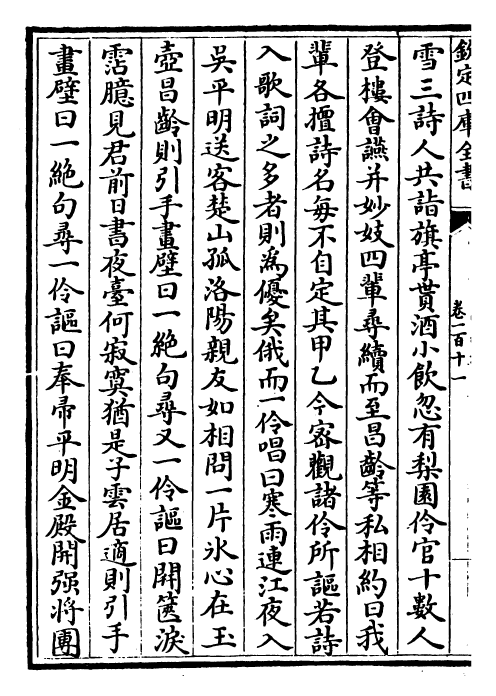 欽定四庫全書
卷一百十一
雪三詩人共詣旗亭貰酒小飲忽有梨園伶官十數人
登樓會讌并妙妓四輩尋續而至昌齡等私相約曰我
輩各擅詩名每不自定其甲乙今宻觀諸伶所謳若詩
入歌詞之多者則為優矣俄而一伶唱曰寒雨連江夜入
吳平明送客楚山孤洛陽親友如相問一片氷心在玉
壺昌齡則引手畫壁曰一絶句尋又一伶謳曰開篋淚
霑臆見君前日書夜臺何寂寞猶是子雲居適則引手
畫壁曰一絶句尋一伶謳曰奉帚平明金殿開强將團